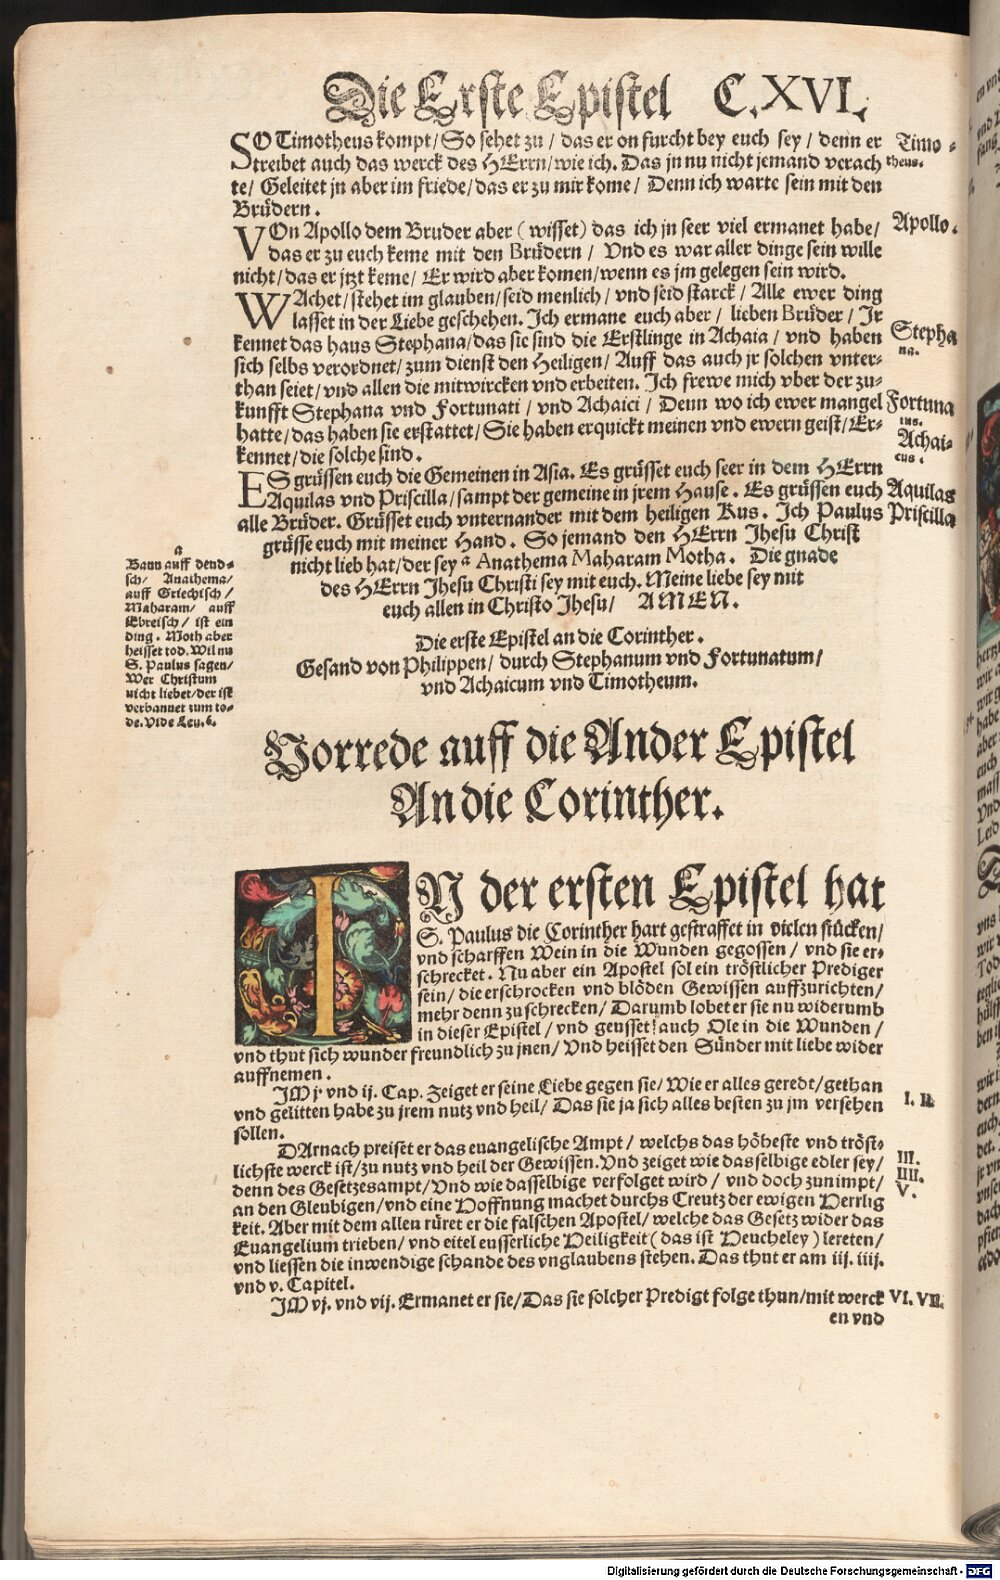 Die Erste Epistel C. XVI.
SO Timotheus kompt/ So sehet zu/ das er on furcht bey euch sey/ denn er
treibet auch das werck des HErrn/ wie ich. Das jn nu nicht jemand verach
te/ Geleitet jn aber im friede/ das er zu mir kome/ Denn ich warte sein mit den
Brüdern.
Timo-
theus.
VOn Apollo dem Bruder aber (wisset) das ich jn seer viel ermanet habe/
das er zu euch keme mit den Brüdern/ Vnd es war aller dinge sein wille
nicht/ das er jtzt keme/ Er wird aber komen/ wenn es jm gelegen sein wird.
Apollo.
WAchet/ stehet im glauben/ seid menlich/ vnd seid starck/ Alle ewer ding
lasset in der Liebe geschehen. Ich ermane euch aber/ lieben Brüder/ Ir
kennet das haus Stephana/ das sie sind die Erstlinge in Achaia/ vnd haben
sich selbs verordnet/ zum dienst den Heiligen/ Auff das auch jr solchen vnter-
than seiet/ vnd allen die mitwircken vnd erbeiten. Ich frewe mich vber der zu-
kunfft Stephana vnd Fortunati/ vnd Achaici/ Denn wo ich ewer mangel
hatte/ das haben sie erstattet/ Sie haben erquickt meinen vnd ewern geist/ Er-
kennet/ die solche sind.
Stepha
na.
Fortuna
tus.
Achai-
cus.
ES grüssen euch die Gemeinen in Asia. Es grüsset euch seer in dem HErrn
Aquilas vnd Priscilla/ sampt der gemeine in jrem Hause. Es grüssen euch
alle Brüder. Grüsset euch vnternander mit dem heiligen Kus. Ich Paulus
grüsse euch mit meiner Hand. So jemand den HErrn Jhesu Christ
nicht lieb hat/ der sey a Anathema Maharam Motha. Die gnade
des HErrn Jhesu Christi sey mit euch. Meine liebe sey mit
euch allen in Christo Jhesu/ AMEN.
Aquilas
Priscilla
a
Bann auff deud-
sch/ Anathema/
auff Griechisch/
Maharam/ auff
Ebreisch/ ist ein
ding. Moth aber
heisset tod. Wil nu
S. Paulus sagen/
Wer Christum
nicht liebet/ der ist
verbannet zum to-
de. Vide Leu. 6.
Die erste Epistel an die Corinther.
Gesand von Philippen/ durch Stephanum vnd Fortunatum/
vnd Achaicum vnd Timotheum.
Vorrede auff die Ander Epistel
An die Corinther.
IN der ersten Epistel hat
S. Paulus die Corinther hart gestraffet in vielen stücken/
vnd scharffen Wein in die Wunden gegossen/ vnd sie er-
schrecket. Nu aber ein Apostel sol ein tröstlicher Prediger
sein/ die erschrocken vnd blöden Gewissen auffzurichten/
mehr denn zu schrecken/ Darumb lobet er sie nu widerumb
in dieser Epistel/ vnd geusset auch Ole in die Wunden/
vnd thut sich wunder freundlich zu jnen/ Vnd heisset den Sünder mit liebe wider
auffnemen.
IM j. vnd ij. Cap. Zeiget er seine Liebe gegen sie/ Wie er alles geredt/ gethan
vnd gelitten habe zu jrem nutz vnd heil/ Das sie ja sich alles besten zu jm versehen
sollen.
I. II.
DArnach preiset er das euangelische Ampt/ welchs das höheste vnd tröst-
lichste werck ist/ zu nutz vnd heil der Gewissen. Vnd zeiget wie dasselbige edler sey/
denn des Gesetzesampt/ Vnd wie dasselbige verfolget wird/ vnd doch zunimpt/
an den Gleubigen/ vnd eine Hoffnung machet durchs Creutz der ewigen Herrlig
keit. Aber mit dem allen rüret er die falschen Apostel/ welche das Gesetz wider das
Euangelium trieben/ vnd eitel eusserliche Heiligkeit (das ist Heucheley) lereten/
vnd liessen die inwendige schande des vnglaubens stehen. Das thut er am iij. iiij.
vnd v. Capitel.
III.
IIII.
V.
IM vj. vnd vij. Ermanet er sie/ Das sie solcher Predigt folge thun/ mit werck
VI. VII.
en vnd
Digitalisierung gefördert durch die Deutsche Forschungsgemeinschaft - DFG